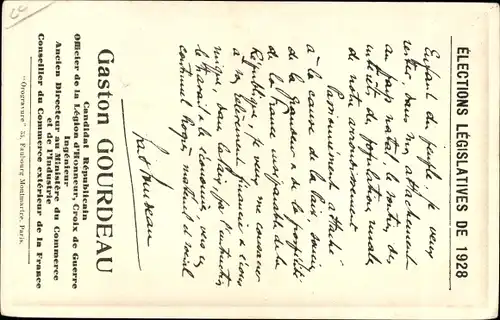 ÉLECTIONS LÉGISLATIVES DE 1928
Enfant du peuple, je veux
rester, dans mon attachement
au pays natal, le soutien des
intérêts des populations rurales
de notre arrondissement
Passionnément attaché
à la cause de la Paix, soucieux
de la grandeur & de la prospérité
de la France inséparable de la
République, je veux me consacrer
à son relèvement financier & écono
mique, dans la paix, par l'instruction
le travail & l'économie, vers un
continuel Progrès matériel et social
Gaston GOURDEAU
Candidat Républicain
Officier de la Légion d'Honneur, Croix de Guerre
Ingénieur
Ancien Directeur au Ministère du Commerce
et de l'Industrie
Conseiller du Commerce extérieur de la France
"Orogravure" 35, Faubourg Montmartre, Paris.